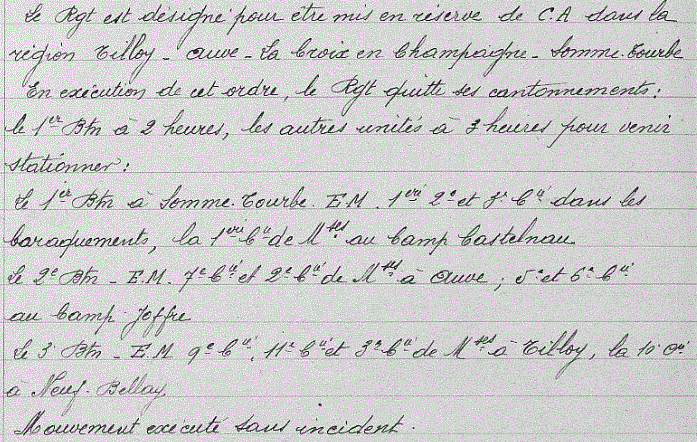 Le Rgt est désigné pour être mis en réserve de C.A dans la
région Tilloy - Auve - La Croix en Champagne - Somme-Tourbe
En exécution de cet ordre, le Rgt quitte ses cantonnements :
le 1er Btn à 2 heures, les autres unités à 3 heures pour venir
stationner :
Le 1er Btn à Somme-Tourbe. E.M. 1ère 2e et 3e Cies dans les
baraquements, la 1ère Cie de Mses au Camp Castelnau
Le 2e Btn - E.M. 7e Cie et 2e Cie de Mses à Auve ; 5e et 6e Cies
au Camp Joffre
Le 3e Btn - E.M 9e Cie, 11e Cie et 3e Cie de Mses à Tilloy, la 10e Cie
à Neuf-Bellay.
Mouvement exécuté sans incident.